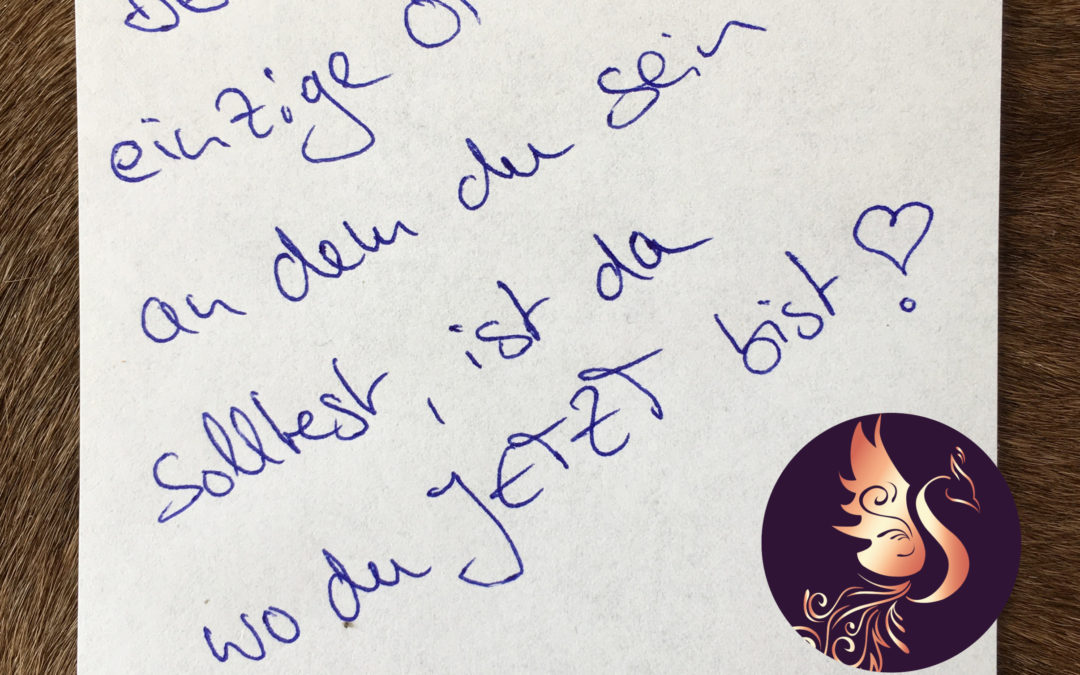 einzige
an dem du sein
solltest, ist da
wo du JETZT bist